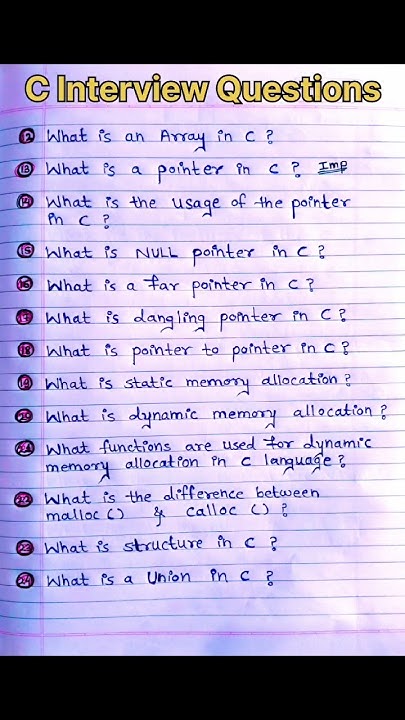 C Interview Questions
12 What is an Array in C ?
13 What is a pointer in C ? Imp
14 What is the usage of the pointer
in C ?
15 What is NULL pointer in C ?
16 What is a far pointer in C ?
17 What is dangling pointer in C ?
18 What is pointer to pointer in C ?
19 What is static memory allocation ?
20 What is dynamic memory allocation ?
21 What functions are used for dynamic
memory allocation in C language ?
22 What is the difference between
malloc () & calloc () ?
23 What is structure in C ?
24 What is a Union in C ?